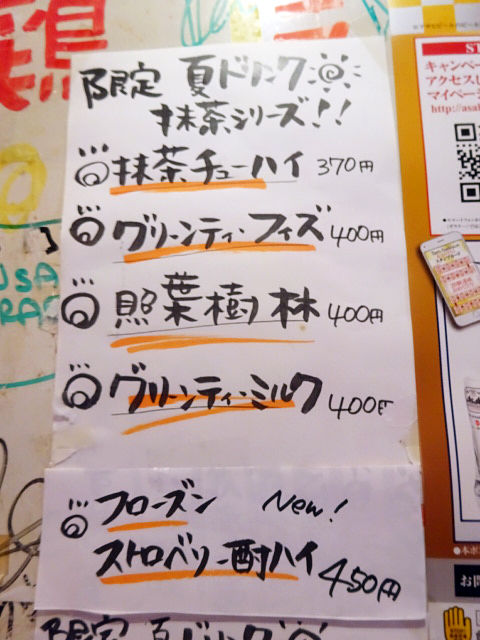 鶏
限定 夏ドリンク
抹茶シリーズ!!
抹茶チューハイ 370円
グリーンティーフィズ 400円
照葉樹林 400円
グリーンティーミルク 400円
フローズン New!
ストロベリー酎ハイ 450円
限定 夏ドリンク
キャンペー
アクセスし
マイペー
http://asa
お問